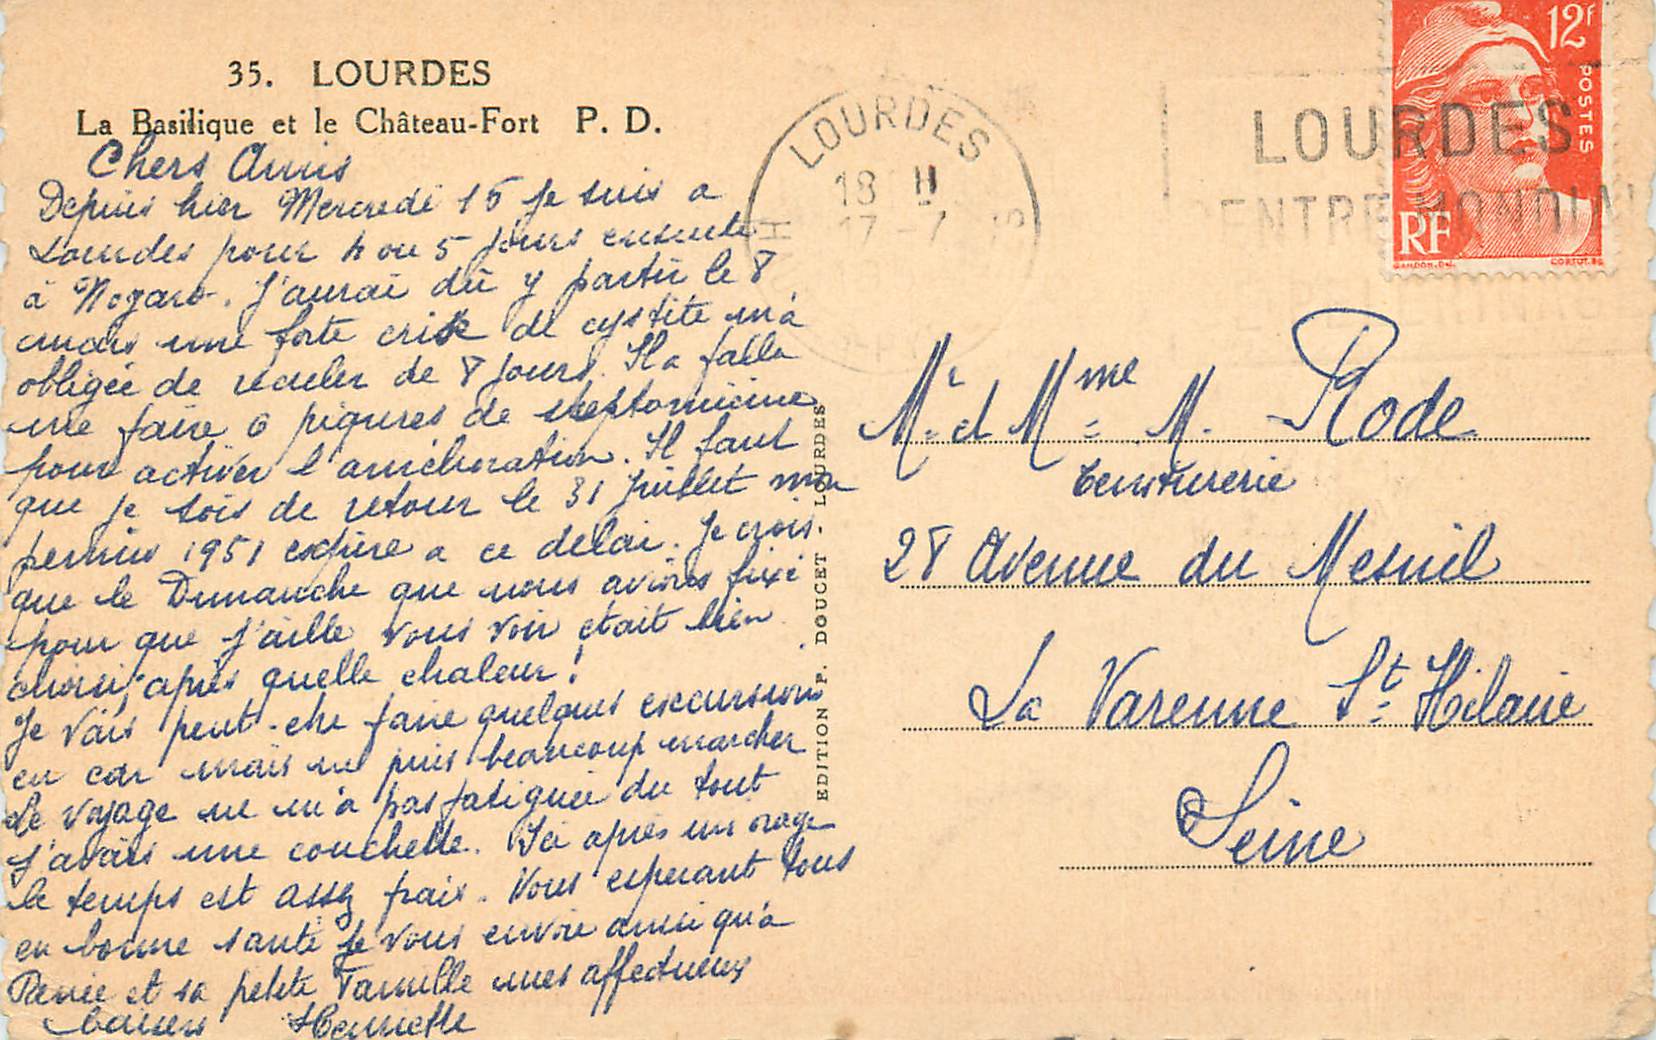 35. LOURDES
La Basilique et le Château-Fort P. D.
Chers Amis
Depuis hier Mercredi 16 je suis a
Lourdes pour 4 ou 5 jours ensuite
à Nogaro. J'aurai dû y partir le 8
mais une forte crise de cystite m'a
obligée de reculer de 8 jours. Il a fallu
me faire 6 piqures de streptomicine
pour activer l'amélioration. Il faut
que je sois de retour le 31 Juillet mon
permis 1951 expire a ce delai. Je crois
que le Dimanche que nous avions fixé
pour que j'aille vous voir était bien
choisi, après quelle chaleur!
Je vais peut-etre faire quelques excursions
en car mais ne puis beaucoup marcher
Le voyage ne m'a pas fatiguée du tout
j'avais une couchette. Ici après un orage
le temps est assez frais. Vous esperant tous
en bonne santé je vous envoie ainsi qu'à
Renée et sa petite Famille mes affectueux
baisers Henriette
EDITION P. DOUCET. LOURDES
LOURDES
18 H
17-7
LOURDES
CENTRE MONDIAL
12f
POSTES
RF
GANDON. DEL.
CORTOT. SC.
Mr et Mme M. Rode
Teinturerie
28 Avenue du Mesnil
La Varenne St Hilaire
Seine